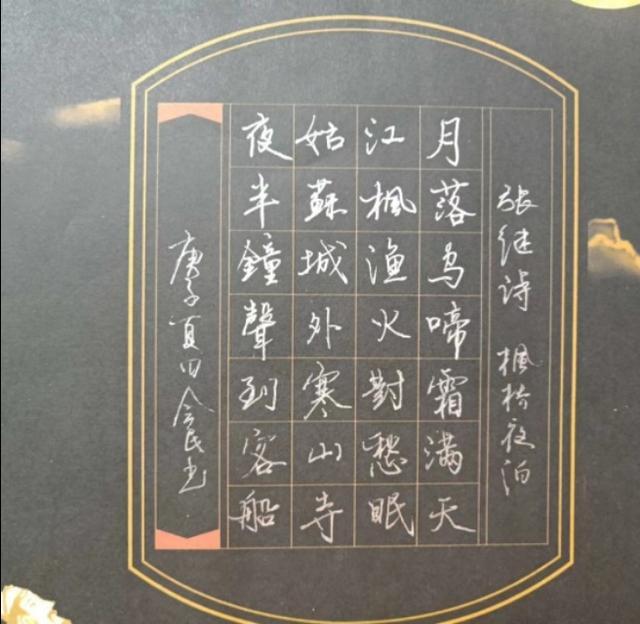 张继诗 楓桥夜泊
月落乌啼霜满天
江楓渔火對愁眠
姑蘇城外寒山寺
夜半鐘聲到客船
庚子夏田会民书